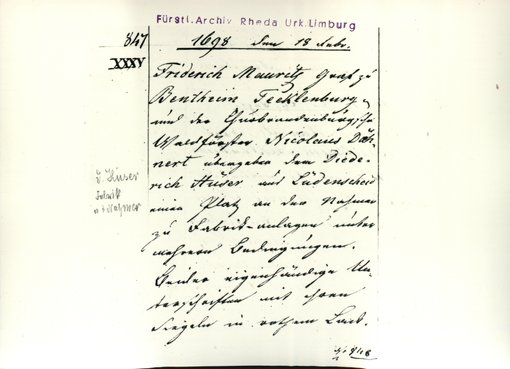 Fürstl. Archiv Rheda Urk. Limburg
847
XXXV
1698 den 18 Febr.
Friderich Mauritz Graf zu
Bentheim Tecklenburg
und der Churbrandenburgische
Waldförster Nicolaus Däh-
nert übergeben dem Diede-
rich Hüser aus Lüdenscheid
einen Platz an der Nahmer
zu Fabrik-anlagen unter
mehrern Bedingungen.
Beider eigenhändige Un-
terschriften mit ihren
Siegeln in rothem Lack.
Hüser
Fabrik
Nahmer